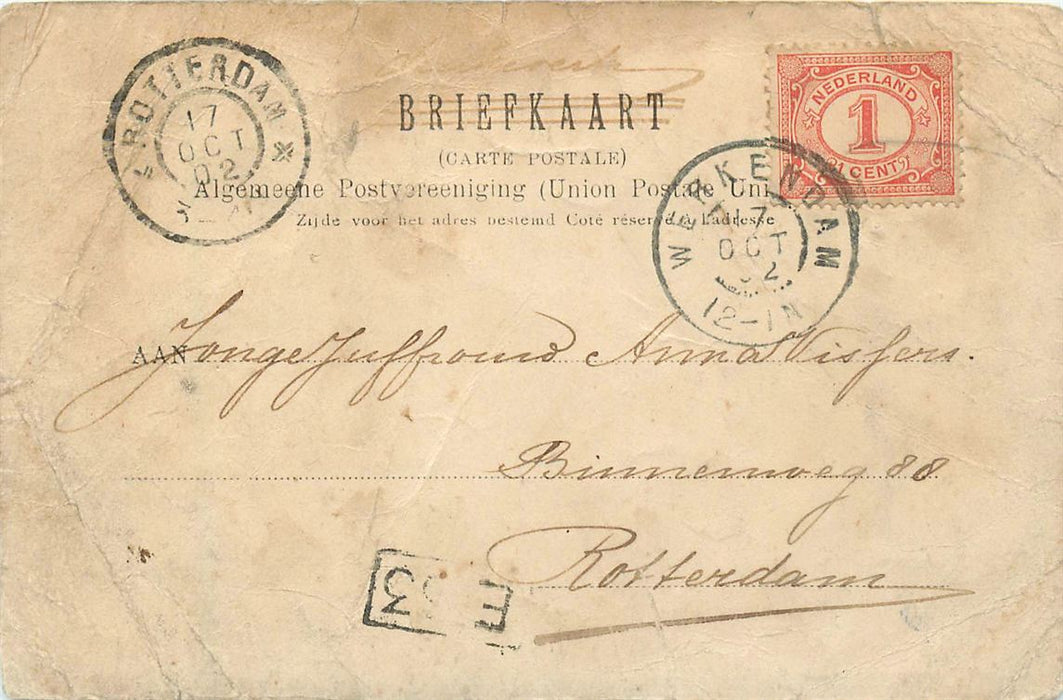 ROTTERDAM
17
OCT
02
BRIEFKAART
(CARTE POSTALE)
Algemeene Postvereeniging (Union Postale Uni
Zijde voor het adres bestemd Coté réservé à l'adresse
NEDERLAND
1
1 CENT
WERKENDAM
17
OCT
02
12-1N
AAN Jonge Juffrouw Anna Vissers.
Binnenweg 88
Rotterdam
E
33